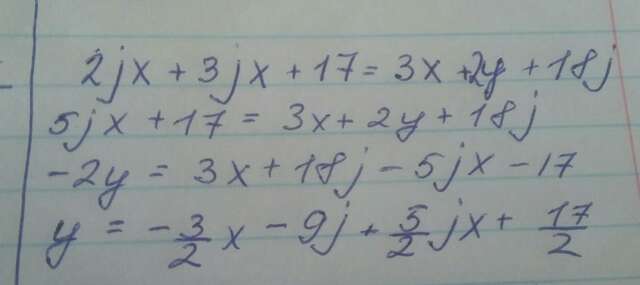 2jx + 3jx + 17 = 3x + 2y + 18j
5jx + 17 = 3x + 2y + 18j
-2y = 3x + 18j - 5jx - 17
y = -3/2 x - 9j + 5/2 jx + 17/2